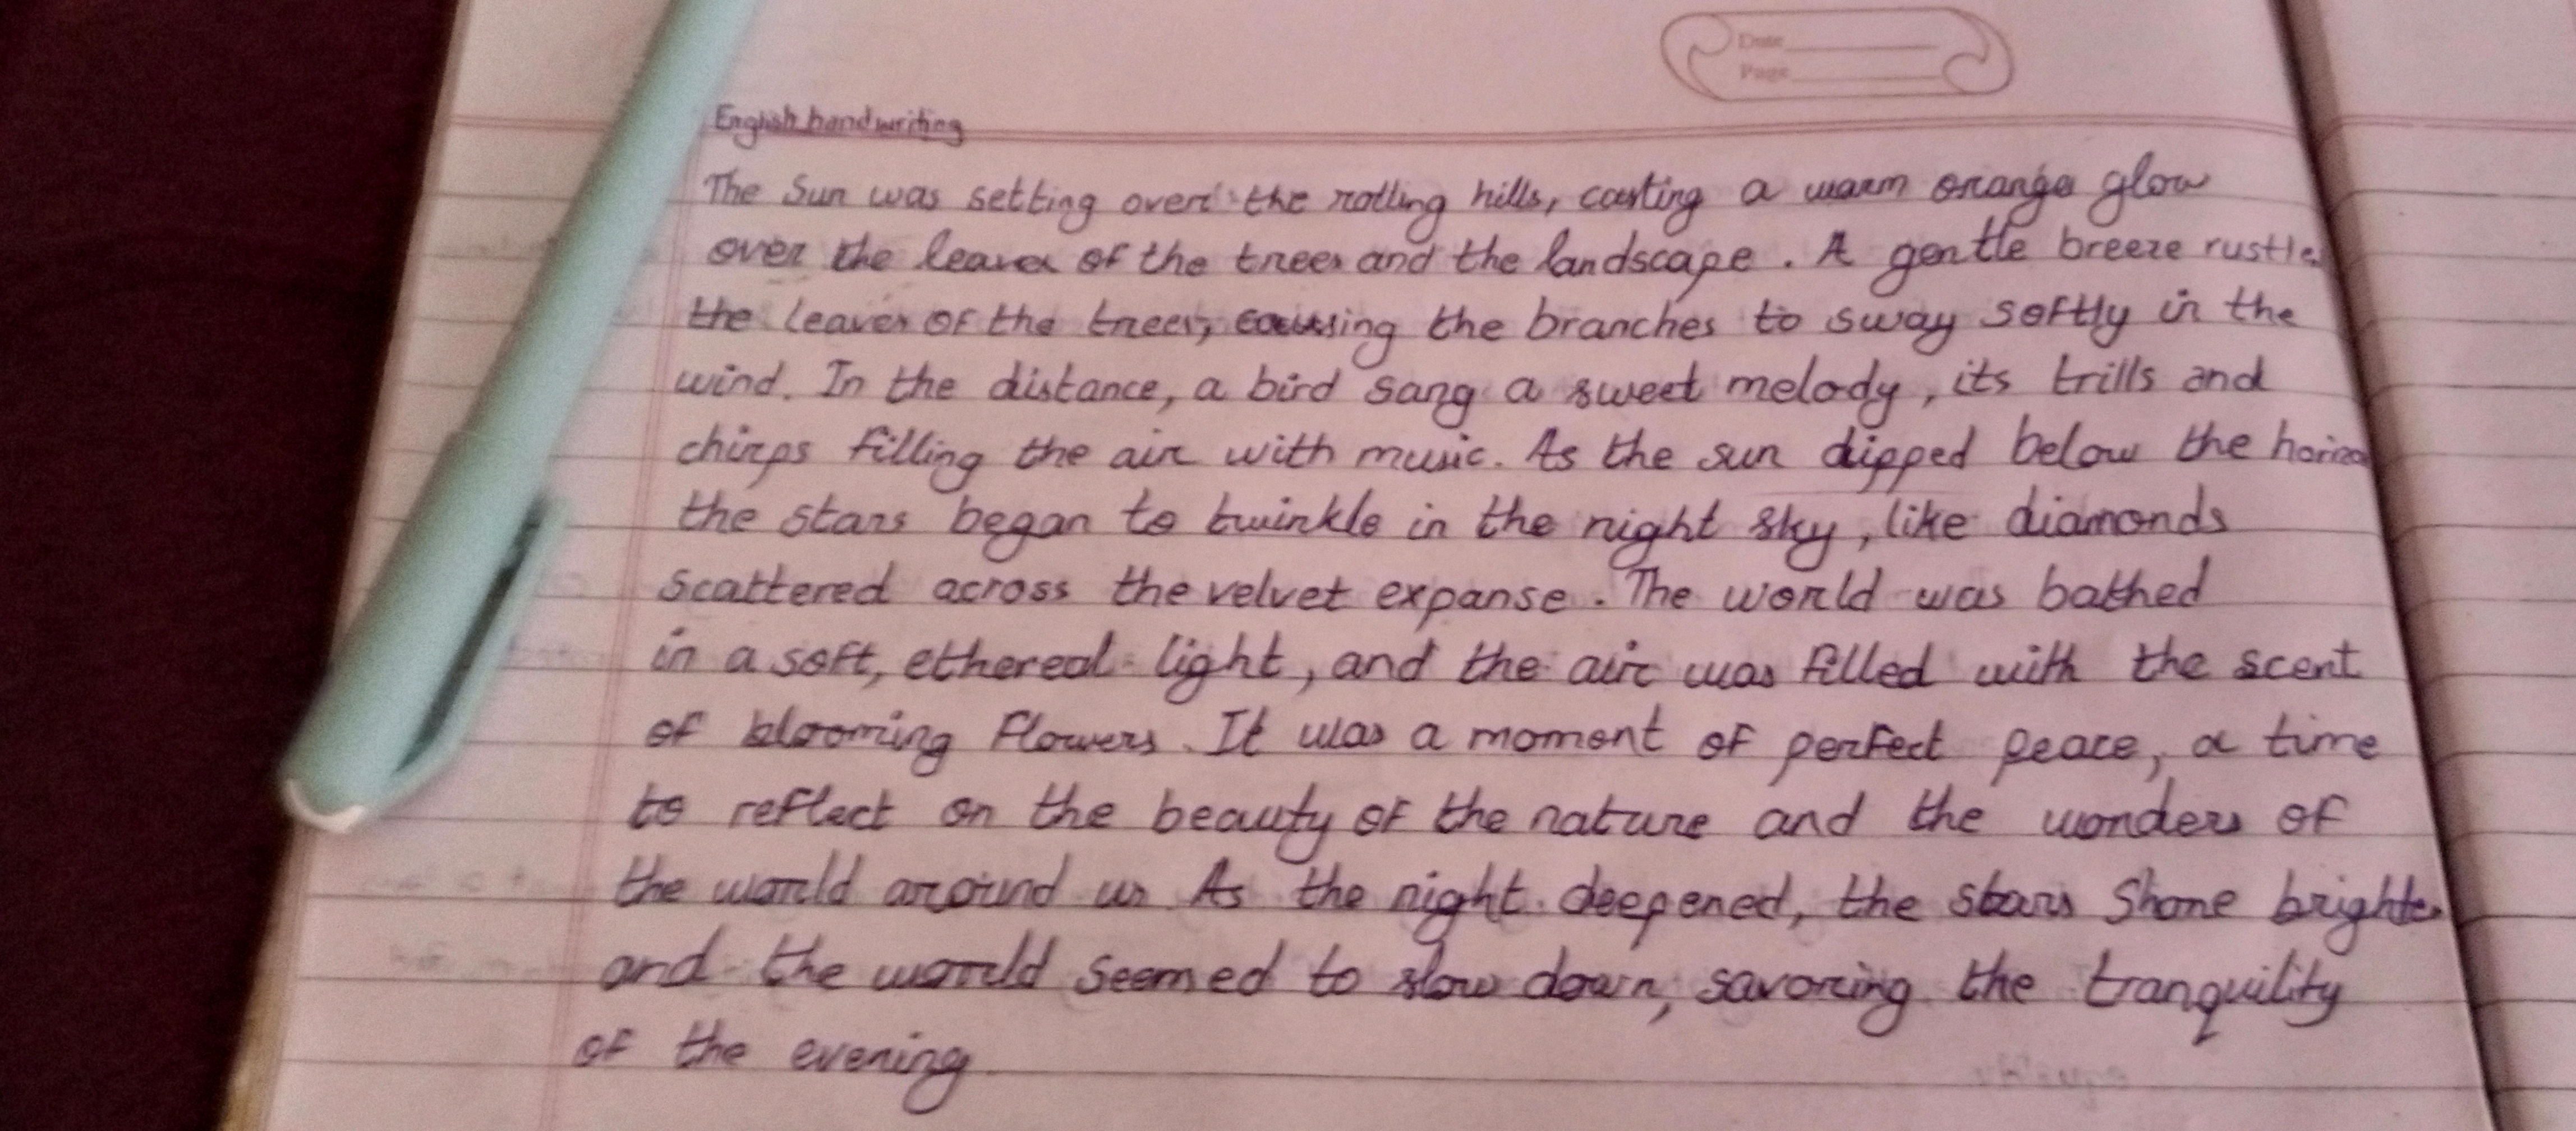 Date
Page
English handwriting
The Sun was setting over the rolling hills, casting a warm orange glow
over the leaves of the trees and the landscape. A gentle breeze rustles
the leaves of the trees, causing the branches to sway softly in the
wind. In the distance, a bird sang a sweet melody, its trills and
chirps filling the air with music. As the sun dipped below the
the stars began to twinkle in the night sky, like diamonds
scattered across the velvet expanse. The world was bathed
in a soft, ethereal light, and the air was filled with the scent
of blooming flowers. It was a moment of perfect peace, a time
to reflect on the beauty of the nature and the wonders of
the world around us As the night deepened, the stars Shone brighter
and the world seemed to slow down, savoring the tranquility
of the evening